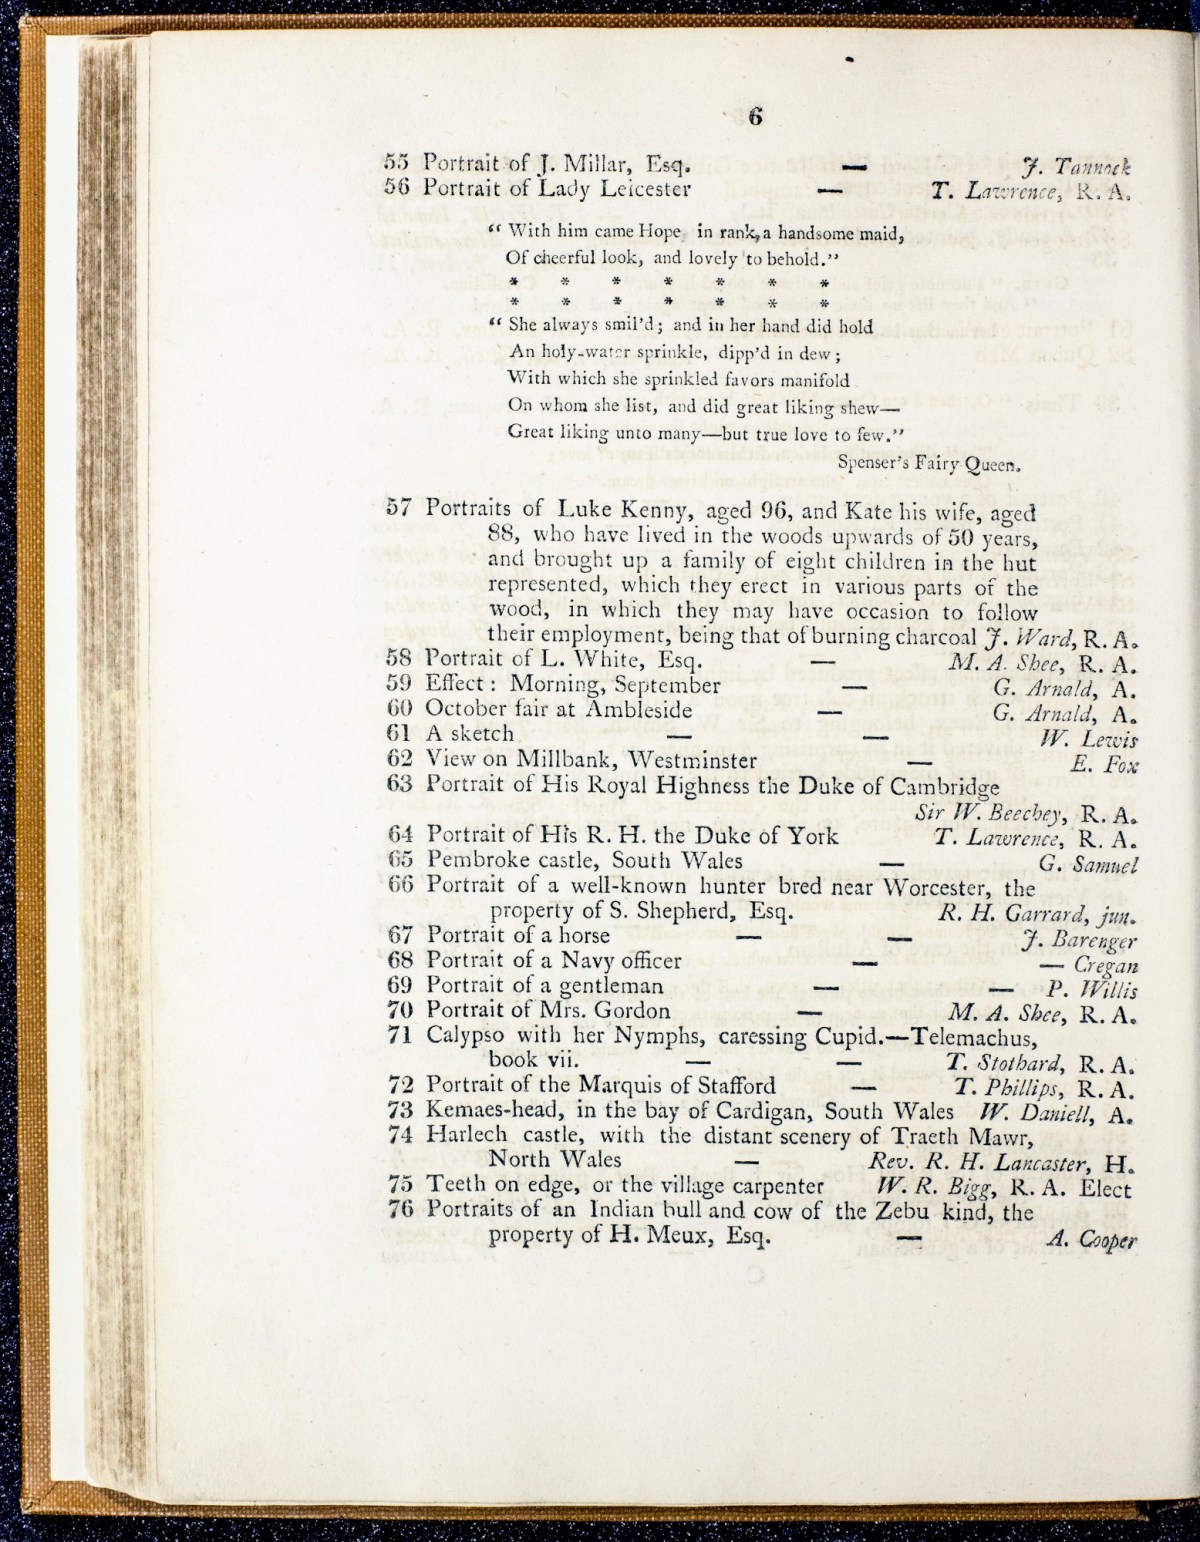 6
55 Portrait of J. Millar, Esq. — J. Tannock
56 Portrait of Lady Leicester — T. Lawrence, R. A.
“ With him came Hope in rank, a handsome maid,
Of cheerful look, and lovely to behold.”
* * * * * * *
* * * * * * *
“ She always smil'd; and in her hand did hold
An holy-water sprinkle, dipp'd in dew;
With which she sprinkled favors manifold
On whom she list, and did great liking shew—
Great liking unto many—but true love to few.”
Spenser's Fairy Queen.
57 Portraits of Luke Kenny, aged 96, and Kate his wife, aged
88, who have lived in the woods upwards of 50 years,
and brought up a family of eight children in the hut
represented, which they erect in various parts of the
wood, in which they may have occasion to follow
their employment, being that of burning charcoal J. Ward, R. A.
58 Portrait of L. White, Esq. — M. A. Shee, R. A.
59 Effect: Morning, September — G. Arnald, A.
60 October fair at Ambleside — G. Arnald, A.
61 A sketch — — W. Lewis
62 View on Millbank, Westminster — E. Fox
63 Portrait of His Royal Highness the Duke of Cambridge
Sir W. Beechey, R. A.
64 Portrait of His R. H. the Duke of York T. Lawrence, R. A.
65 Pembroke castle, South Wales — G. Samuel
66 Portrait of a well-known hunter bred near Worcester, the
property of S. Shepherd, Esq. R. H. Garrard, jun.
67 Portrait of a horse — — J. Barenger
68 Portrait of a Navy officer — — Cregan
69 Portrait of a gentleman — — P. Willis
70 Portrait of Mrs. Gordon — M. A. Shee, R. A.
71 Calypso with her Nymphs, caressing Cupid.—Telemachus,
book vii. — — T. Stothard, R. A.
72 Portrait of the Marquis of Stafford — T. Phillips, R. A.
73 Kemaes-head, in the bay of Cardigan, South Wales W. Daniell, A.
74 Harlech castle, with the distant scenery of Traeth Mawr,
North Wales — Rev. R. H. Lancaster, H.
75 Teeth on edge, or the village carpenter W. R. Bigg, R. A. Elect
76 Portraits of an Indian bull and cow of the Zebu kind, the
property of H. Meux, Esq. — A. Cooper